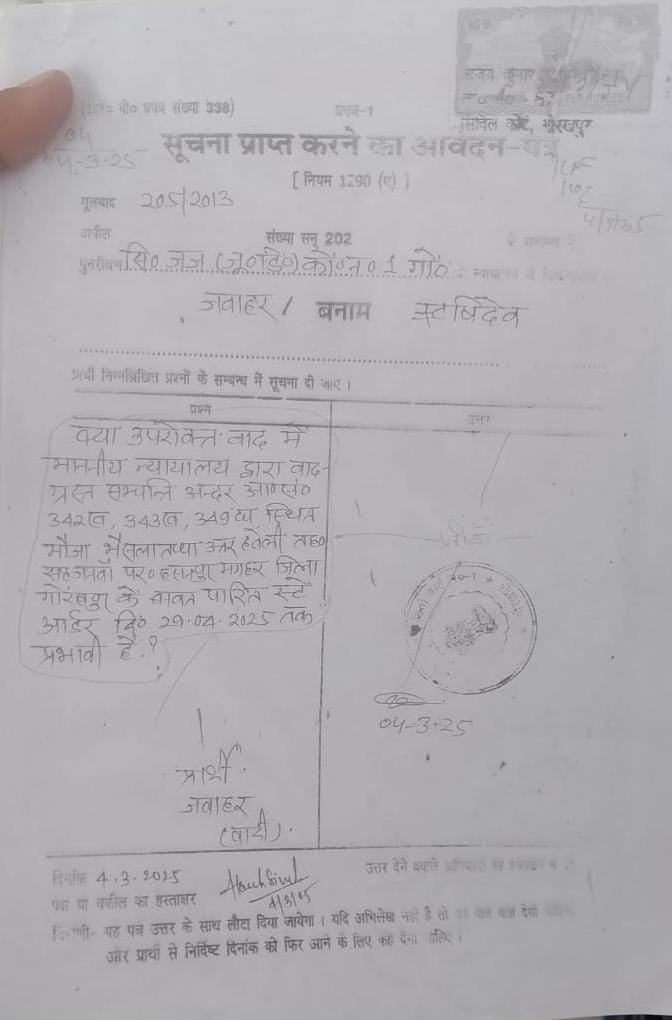 सिविल कोर्ट, गोरखपुर
(आर० वी० प्रपत्र संख्या 338) प्रपत्र-1
04
04-3-25
सूचना प्राप्त करने का आवेदन-पत्र
[ नियम 1290 (ए) ]
4/3/25
मूलवाद 205/2013
अपील संख्या सन् 202
पुनरीक्षण सि० जज (जू०डि०) को०न० 1 गो०
जवाहर / बनाम
प्रार्थी निम्नलिखित प्रश्नों के सम्बन्ध में सूचना दी जाए ।
प्रश्न उत्तर
क्या उपरोक्त वाद में
माननीय न्यायालय द्वारा वाद-
ग्रस्त सम्पत्ति अन्दर आ०सं०
342ख, 343ख, 349 स्थित
मौजा भैसला तप्पा उत्तर हवेली तह०
सहजनवा पर० हसनपुर मगहर जिला
गोरखपुर के बावत पारित स्टे
आर्डर दि० 29.04.2025 तक
प्रभावी है ?
04-3-25
प्रार्थी
जवाहर
(वादी).
दिनांक 4.3.2025 उत्तर देने वाले
पक्ष या वकील का हस्ताक्षर
4/3/25
यह पत्र उत्तर के साथ लौटा दिया जायेगा । यदि अभिलेख नहीं है तो
और प्रार्थी से निर्दिष्ट दिनांक को फिर आने के लिए कह देना चाहिए ।